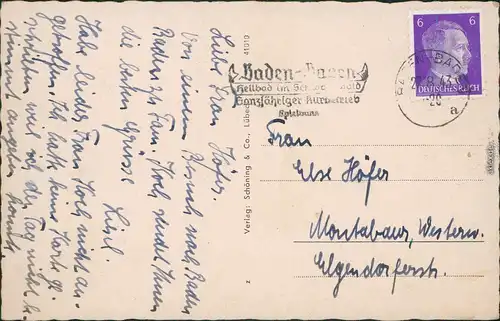 Liebe Frau Höfer.
Von einem Besuch nach Baden
Baden zu Fam. Koch sendet Ihnen
die besten Grüsse
Liesl.
Habe leider Frau Koch nicht an-
getroffen. Ich hatte keine Karte ge-
schrieben weil ich den Tag nicht be-
stimmt angeben konnte
Verlag: Schöning & Co., Lübeck
41010
z
Baden-Baden
Heilbad im Schwarzwald
Ganzjähriger Kurbetrieb
Spielbank
BADEN-BADEN
a
6 6
DEUTSCHES REICH
Frau
Else Höfer
Montabaur, Westerw.
Elgendorferstr.